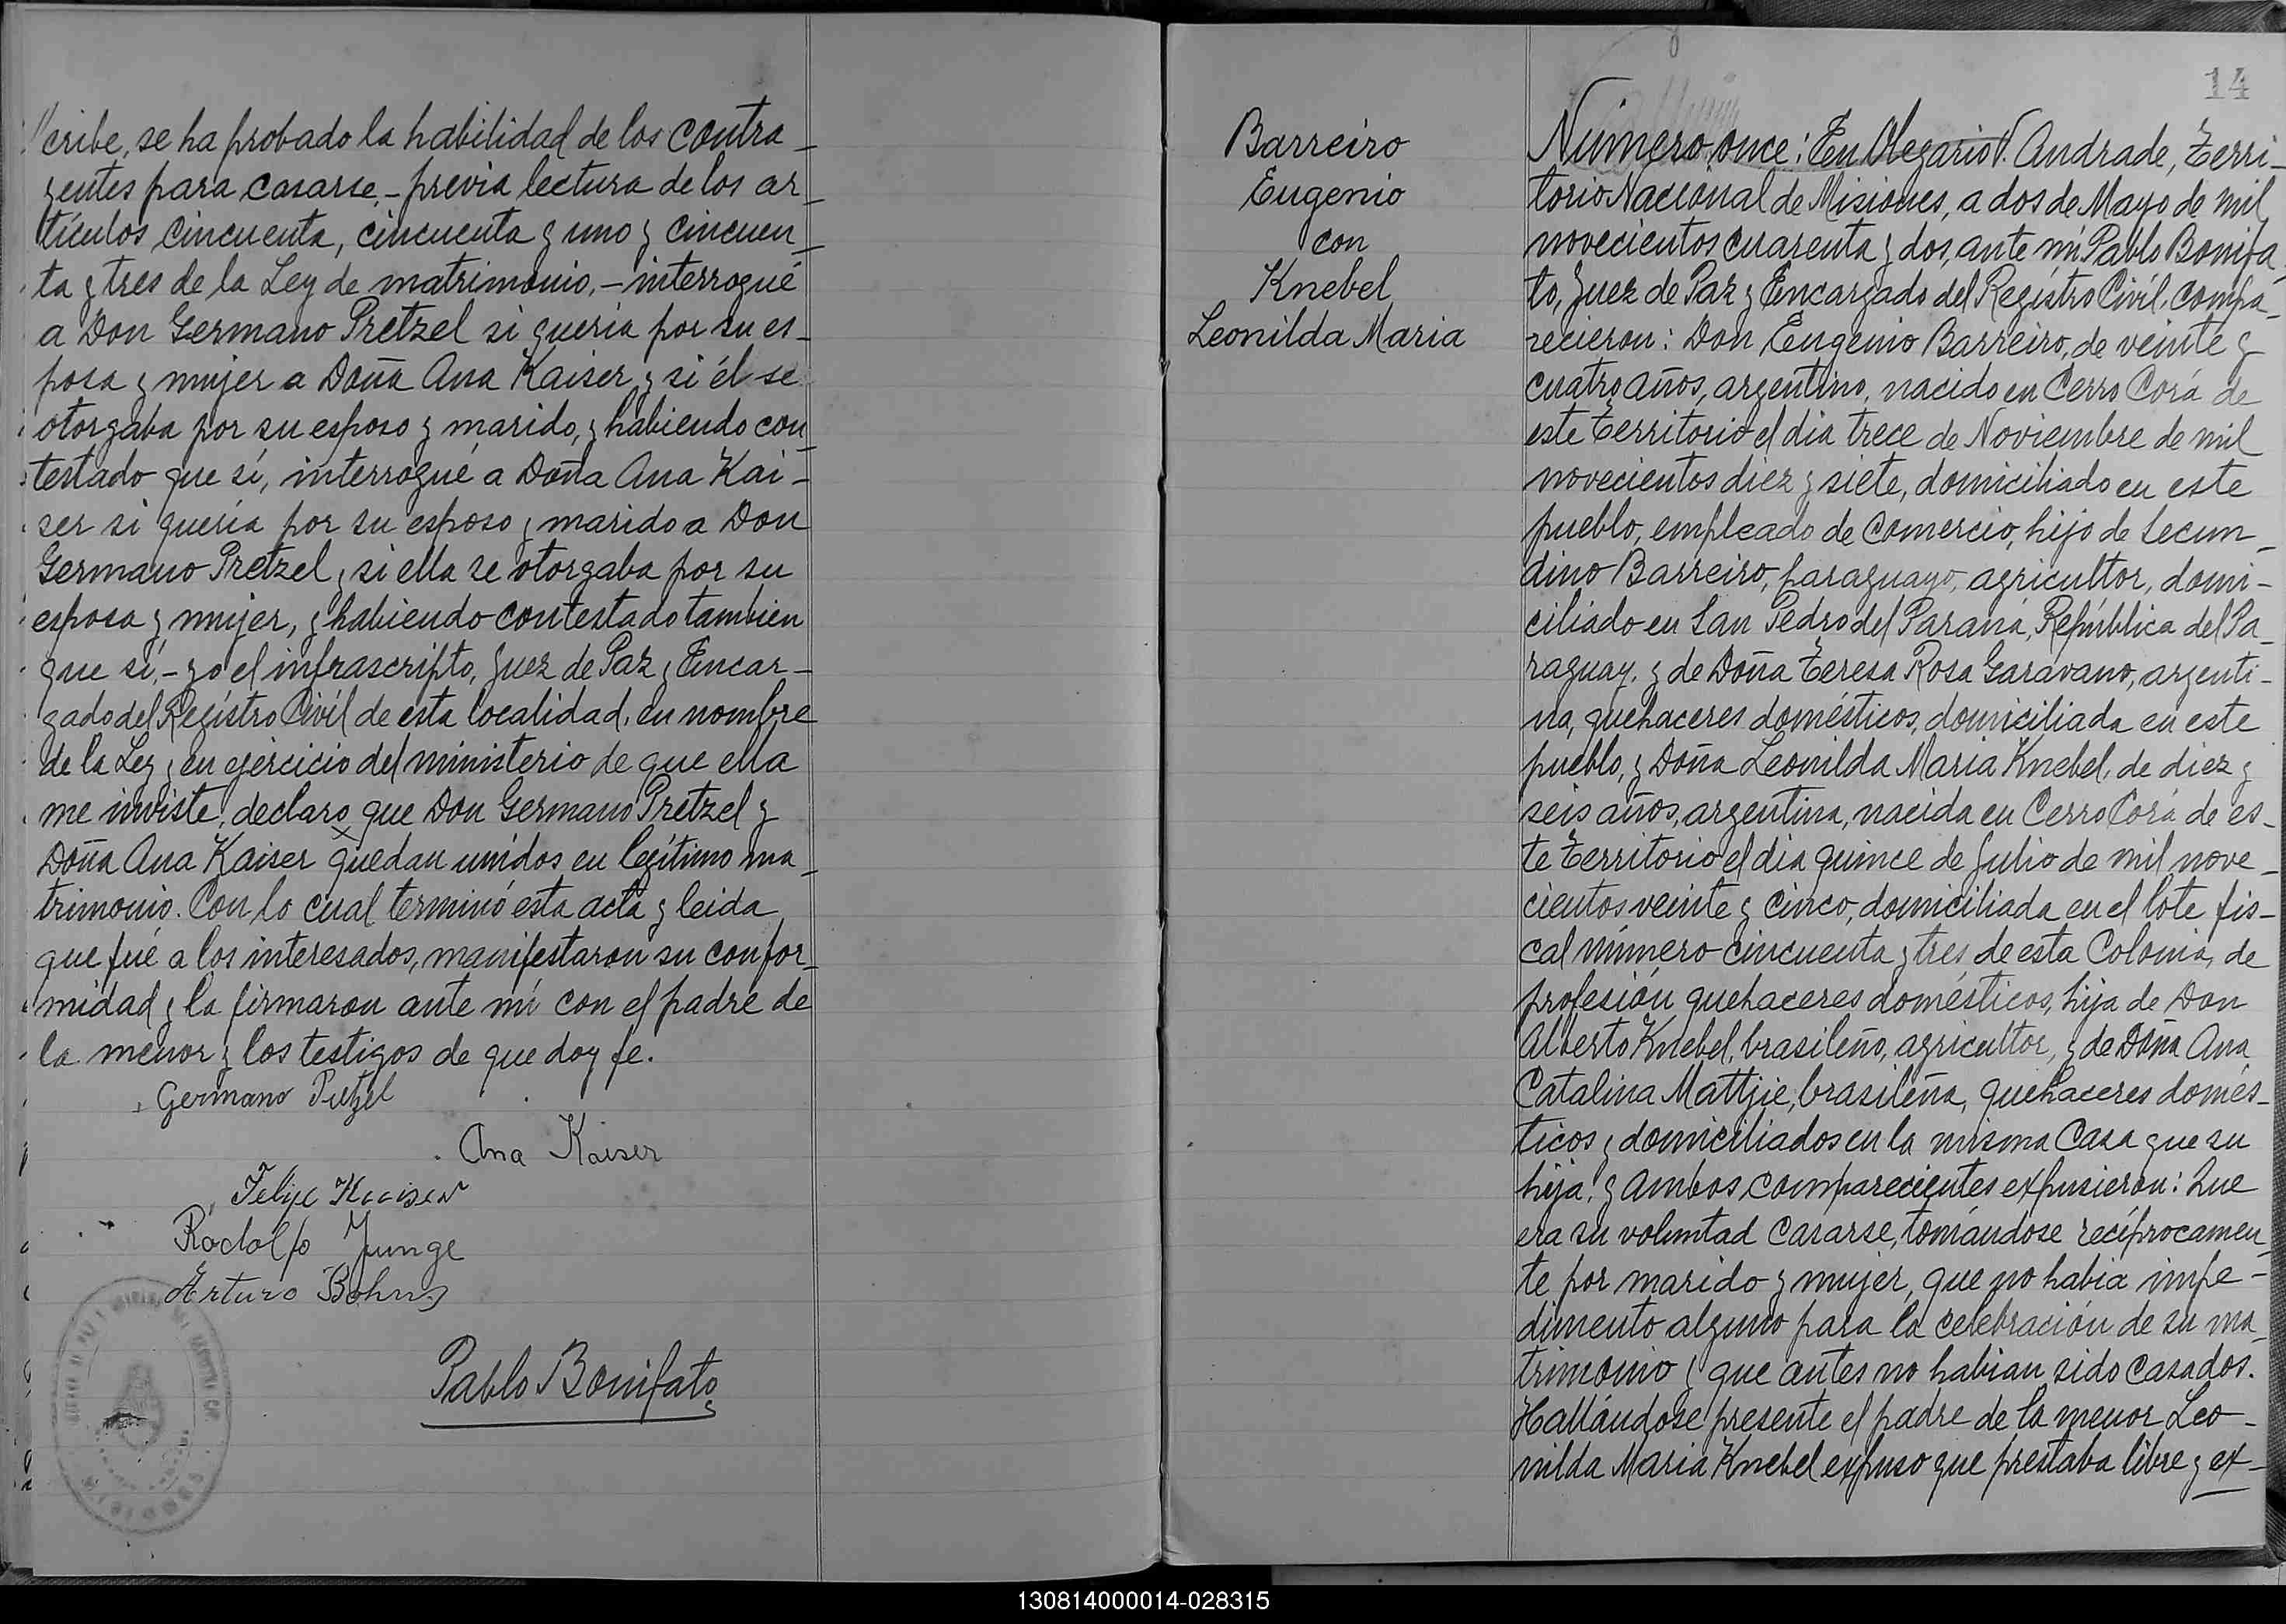 cribe, se ha probado la habilidad de los contra-
yentes para casarse, - previa lectura de los ar-
tículos cincuenta, cincuenta y uno y cincuen-
ta y tres de la Ley de matrimonio, - interrogué
a Don Germano Pretzel si queria por su es-
posa y mujer a Doña Ana Kaiser y si él se
otorgaba por su esposo y marido, y habiendo con-
testado que sí, interrogué a Doña Ana Kai-
ser si quería por su esposo y marido a Don
Germano Pretzel y si ella se otorgaba por su
esposa y mujer, y habiendo contestado tambien
que sí, - yo el infrascripto, Juez de Paz y Encar-
gado del Registro Civil de esta localidad, en nombre
de la Ley y en ejercicio del ministerio de que ella
me inviste, declaro que Don Germano Pretzel y
Doña Ana Kaiser quedan unidos en legítimo ma-
trimonio. Con lo cual terminó esta acta y leida
que fué a los interesados, manifestaron su confor-
midad y la firmaron ante mí con el padre de
la menor y los testigos de que doy fe.
Germano Pretzel
Ana Kaiser
Felipe Kaiser
Rodolfo Junge
Arturo Bohns
Pablo Bonifato
14
Barreiro
Eugenio
con
Knebel
Leonilda Maria
Número once: En Olegario V. Andrade, Terri-
torio Nacional de Misiones, a dos de Mayo de mil
novecientos cuarenta y dos, ante mí Pablo Bonifa-
to, Juez de Paz y Encargado del Registro Civil, compa-
recieron: Don Eugenio Barreiro, de veinte y
cuatro años, argentino, nacido en Cerro Corá de
este Territorio el dia trece de Noviembre de mil
novecientos diez y siete, domiciliado en este
pueblo, empleado de Comercio, hijo de Secun-
dino Barreiro, paraguayo, agricultor, domi-
ciliado en San Pedro del Paraná, República del Pa-
raguay, y de Doña Teresa Rosa Garavano, argenti-
na, quehaceres domésticos, domiciliada en este
pueblo, y Doña Leonilda Maria Knebel, de diez y
seis años, argentina, nacida en Cerro Corá de es-
te Territorio el dia quince de Julio de mil nove-
cientos veinte y cinco, domiciliada en el lote fis-
cal número cincuenta y tres de esta Colonia, de
profesión quehaceres domésticos, hija de Don
Alberto Knebel, brasileño, agricultor, y de Doña Ana
Catalina Mattjie, brasileña, quehaceres domés-
ticos y domiciliados en la misma Casa que su
hija, y ambos comparecientes expusieron: Que
era su voluntad casarse, tomándose recíprocamen-
te por marido y mujer, que no habia impe-
dimento alguno para la celebración de su ma-
trimonio y que antes no habian sido casados.
Hallándose presente el padre de la menor Leo-
nilda Maria Knebel expuso que prestaba libre y ex-
130814000014-028315